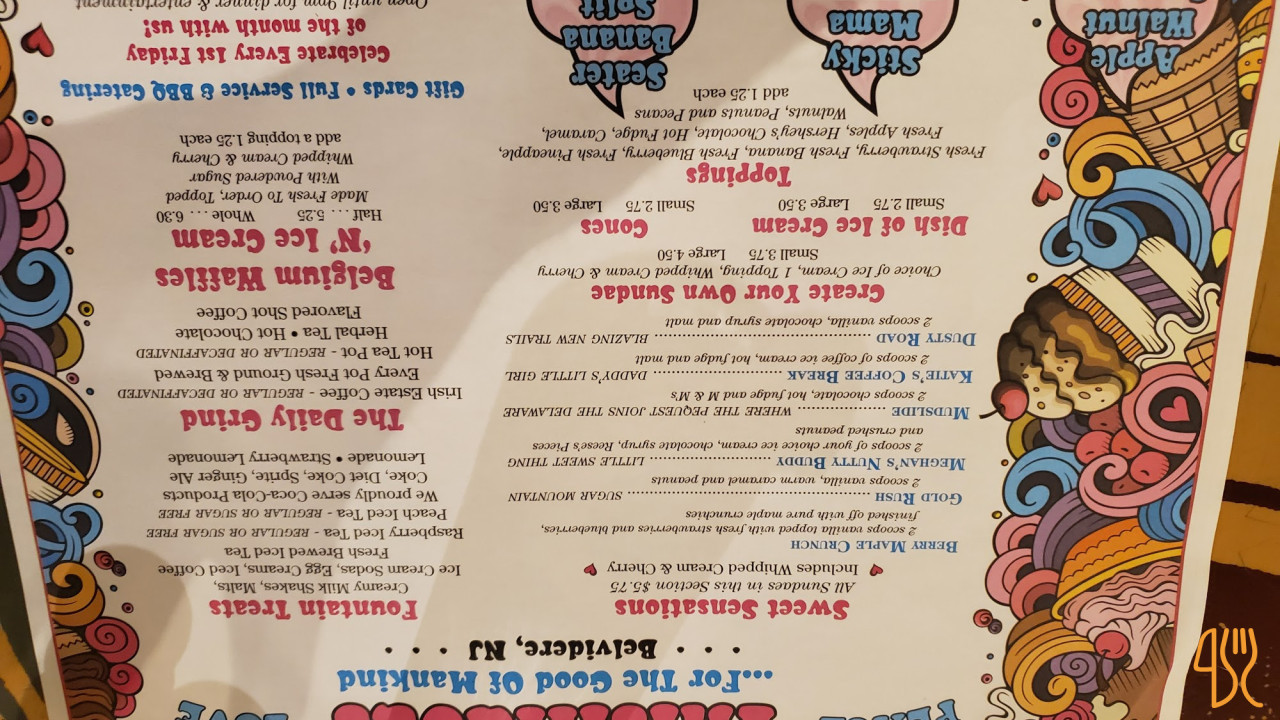 ...For The Good Of Mankind
• • • Belvidere, NJ • • •
Sweet Sensations
All Sundaes in this Section $5.75
Includes Whipped Cream & Cherry
BERRY MAPLE CRUNCH
2 scoops vanilla topped with fresh strawberries and blueberries,
finished with pure maple crunchies
GOLD RUSH ........ SUGAR MOUNTAIN
2 scoops vanilla, warm caramel and peanuts
MEGHAN'S NUTTY BUDDY ........ LITTLE SWEET THING
2 scoops of your choice ice cream, chocolate syrup, Reese's Pieces
and crushed peanuts
MUDSLIDE ........ WHERE THE PEQUEST JOINS THE DELAWARE
chocolate, hot fudge and M & M's
KATIE'S COFFEE BREAK ........ DADDY'S LITTLE GIRL
2 scoops of coffee ice cream, hot fudge and malt
DUSTY ROAD ........ BLAZING NEW TRAILS
2 scoops vanilla, chocolate syrup and malt
Create Your Own Sundae
Choice of Ice Cream, 1 Topping, Whipped Cream & Cherry
Small 3.75 Large 4.50
Dish of Ice Cream
Small 2.75 Large 3.50
Cones
Small 2.75 Large 3.50
Toppings
Fresh Strawberry, Fresh Banana, Fresh Blueberry, Fresh Pineapple,
Fresh Apples, Hershey's Chocolate, Hot Fudge, Caramel,
Walnuts, Pecans and Pecans
add 1.25 each
Apple
Walnut
Sticky
Mama
Seater
Banana
Split
Fountain Treats
Creamy Milk Shakes, Malts,
Ice Cream Sodas, Egg Creams, Iced Coffee
Fresh Brewed Iced Tea
Raspberry Iced Tea - REGULAR OR SUGAR FREE
Peach Iced Tea - REGULAR OR SUGAR FREE
We proudly serve Coca-Cola Products
Coke, Diet Coke, Sprite, Ginger Ale
Lemonade • Strawberry Lemonade
The Daily Grind
Irish Estate Coffee - REGULAR OR DECAFFINATED
Every Pot Fresh Ground & Brewed
Hot Tea Pot - REGULAR OR DECAFFINATED
Herbal Tea • Hot Chocolate
Flavored Shot Coffee
Belgium Waffles
'N' Ice Cream
Half .... 5.25 Whole ... 6.30
Made Fresh To Order, Topped
With Powdered Sugar
Whipped Cream & Cherry
add a topping 1.25 each
Gift Cards • Full Service & BBQ Catering
Celebrate Every 1st Friday
of the month with us!
Open until 9pm for dinner & entertainment